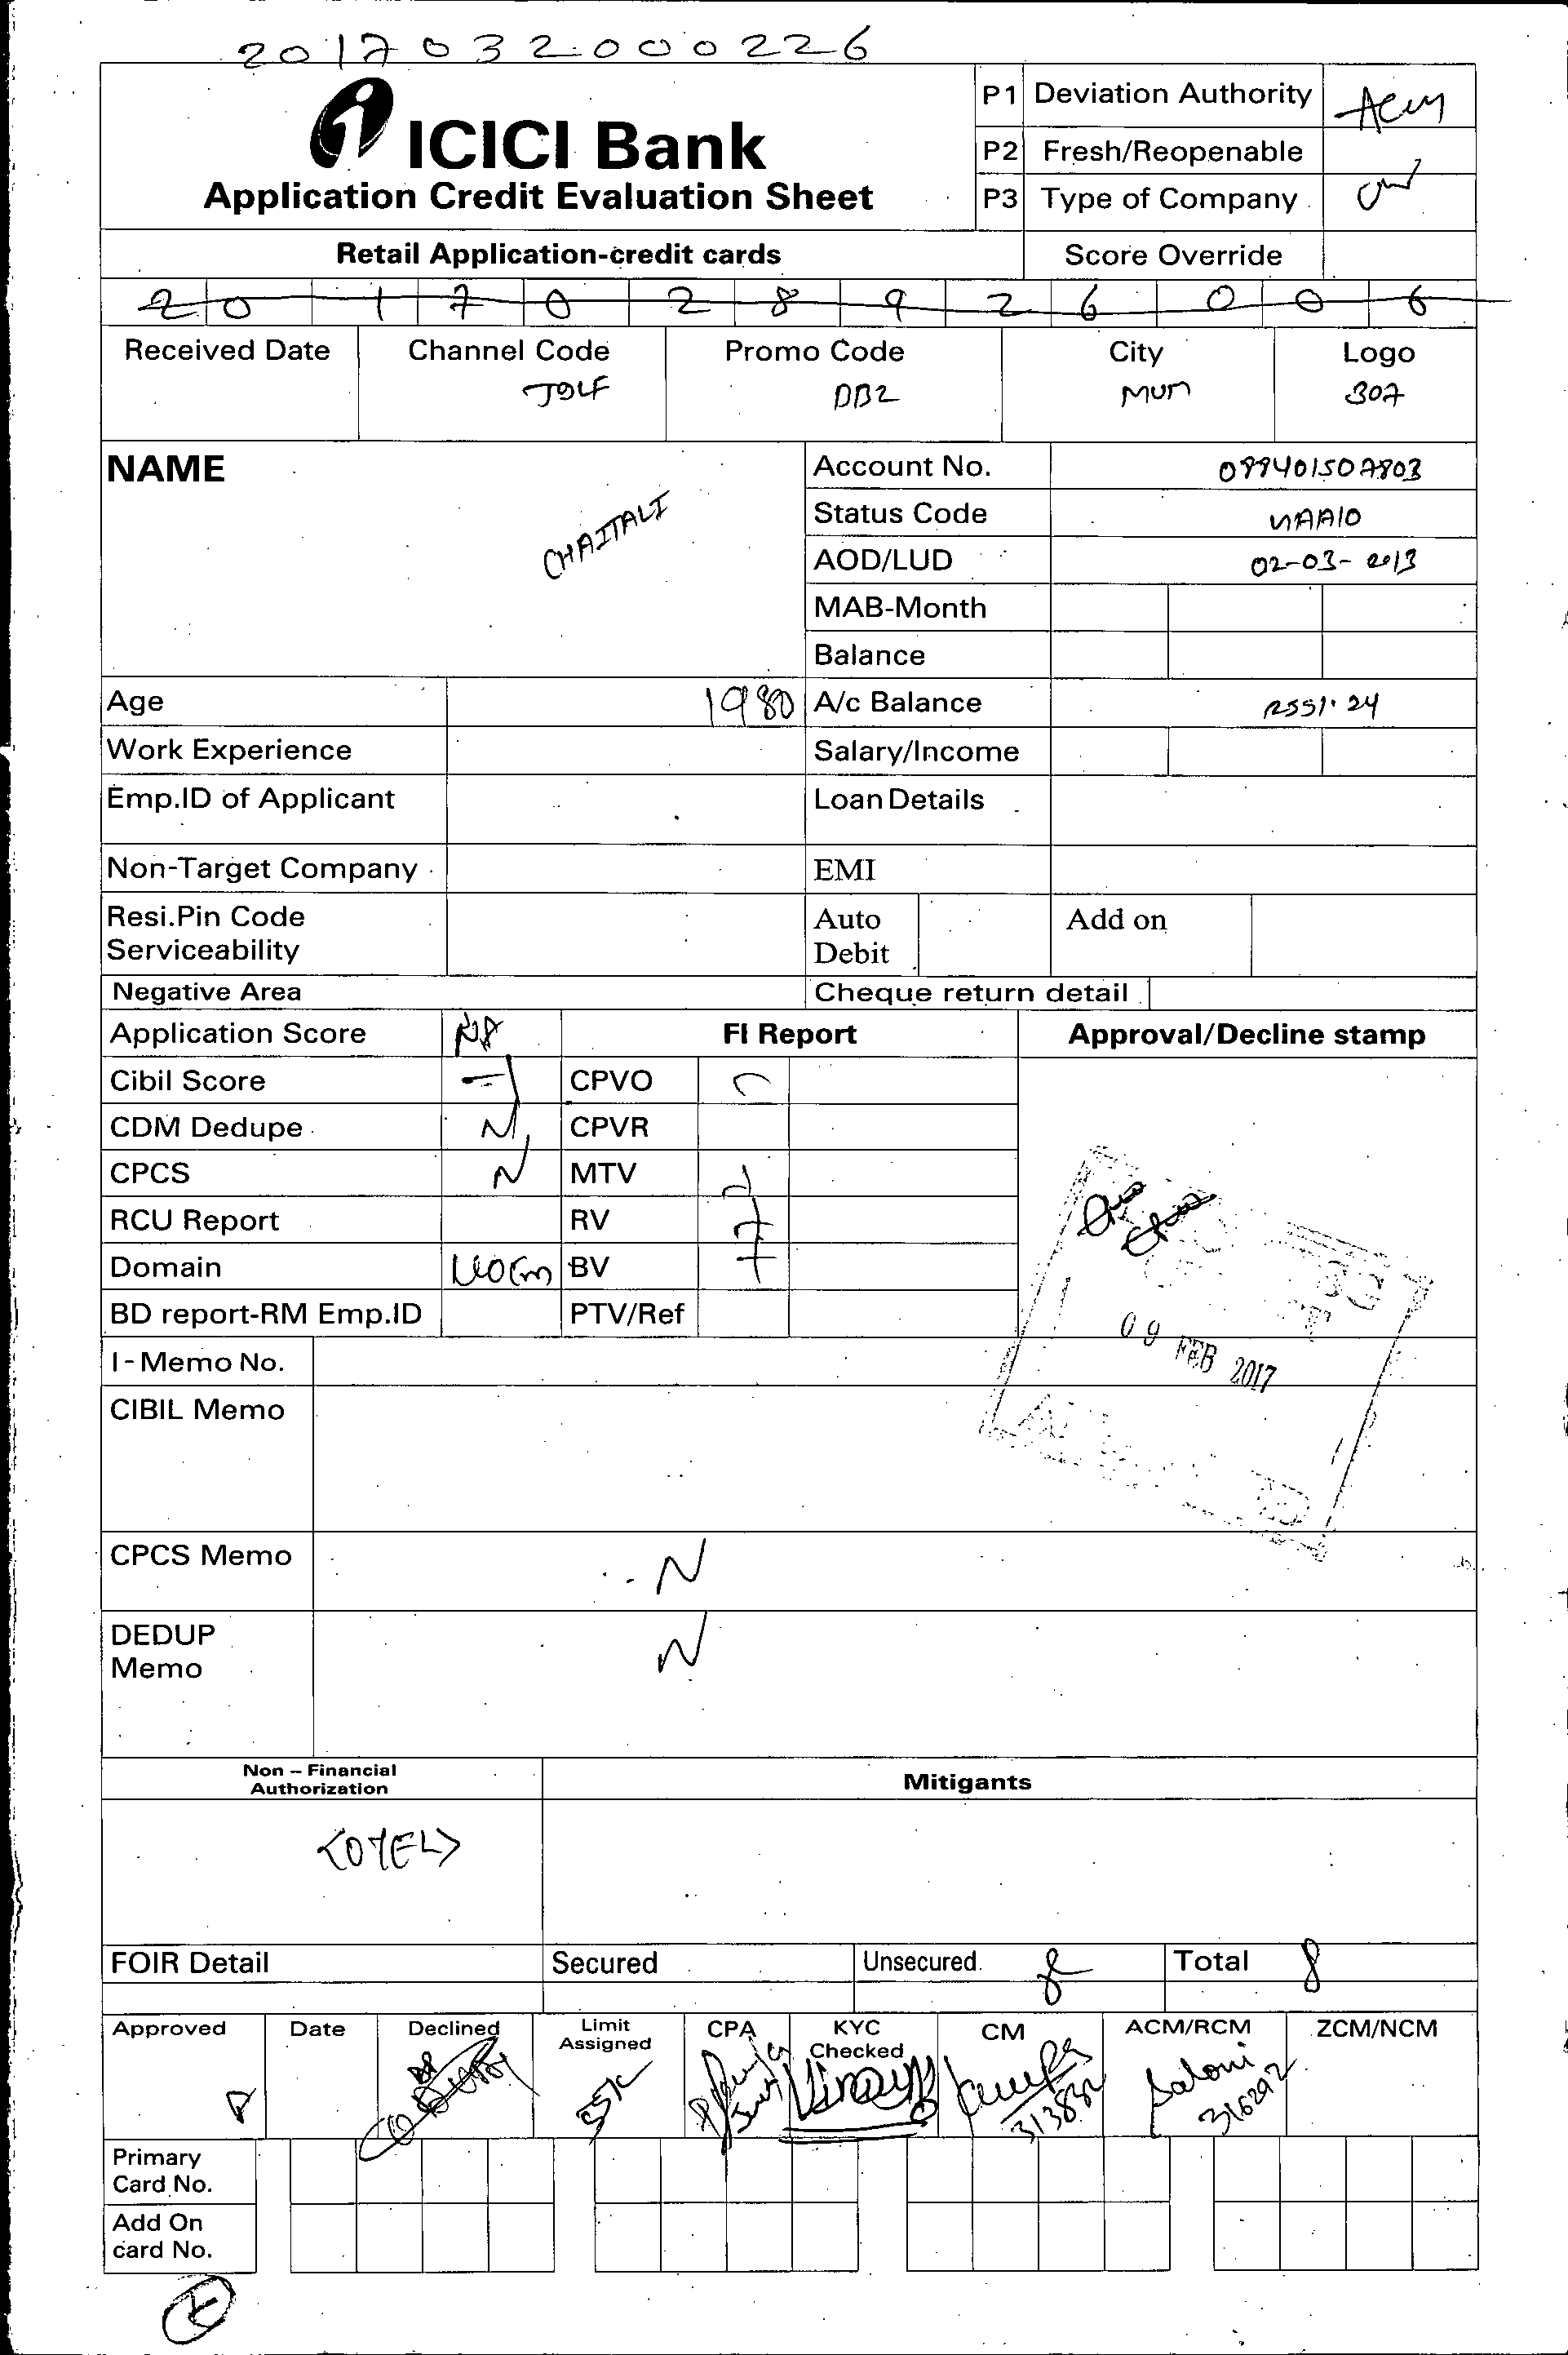 2017032000226
ICICI Bank
Application Credit Evaluation Sheet
P1 Deviation Authority ACM
P2 Fresh/Reopenable
P3 Type of Company
Retail Application-credit cards Score Override
2 0 1 7 0 2 8 9 2 6 0 0 6
Received Date Channel Code Promo Code City Logo
JOLF DB2 MUM 307
NAME CHAITALI
Account No. 099401507803
Status Code
AOD/LUD 02-03-2013
MAB-Month
Balance
Age 1980 A/c Balance
Work Experience Salary/Income
Emp.ID of Applicant Loan Details
Non-Target Company EMI
Resi.Pin Code Serviceability Auto Debit Add on
Negative Area Cheque return detail
Application Score FI Report Approval/Decline stamp
Cibil Score -1 CPVO
CDM Dedupe N CPVR
CPCS N MTV
RCU Report RV
Domain BV
BD report-RM Emp.ID PTV/Ref
09 FEB 2017
I-Memo No.
CIBIL Memo
CPCS Memo N
DEDUP N
Memo
Non – Financial
Authorization Mitigants
FOIR Detail Secured Unsecured 8 Total 8
Approved Date Declined Limit Assigned CPA KYC Checked CM ACM/RCM ZCM/NCM
A 55K 313832 Saloni 316292
Primary
Card No.
Add On
card No.